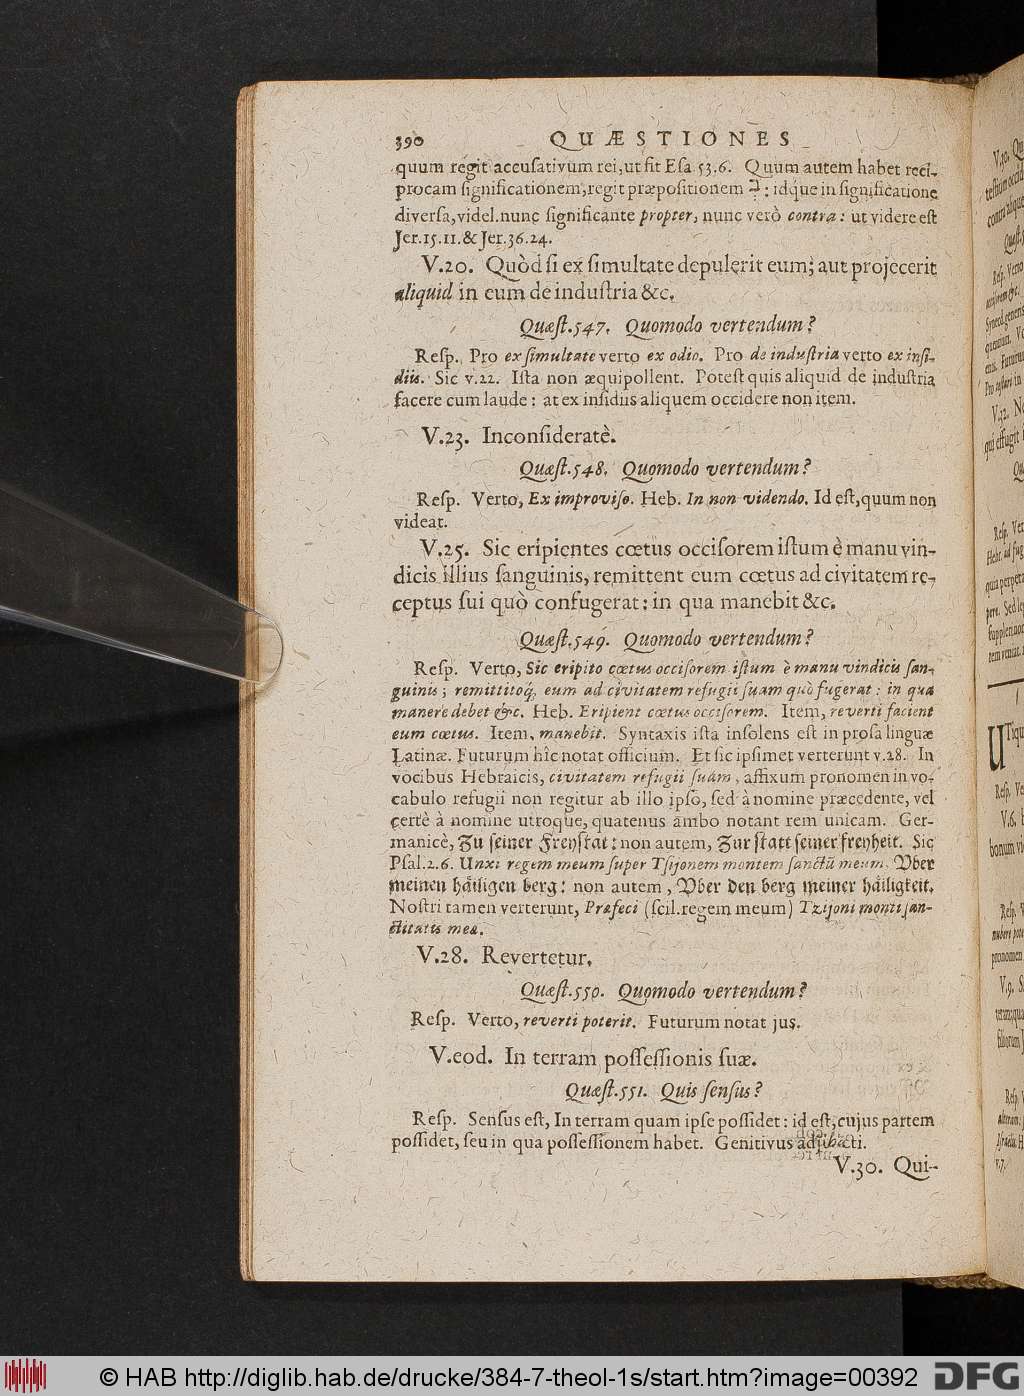 390 QUÆSTIONES
quum regit accusativum rei, ut fit Esa 53.6. Quum autem habet reci-
procam significationem, regit præpositionem ב: idq́ue in significatione
diversa, videl. nunc significante propter, nunc verò contra: ut videre est
Jer.15.11. & Jer.36.24.
V.20. Quòd si ex simultate depulerit eum; aut projecerit
aliquid in eum de industria &c.
Quæst.547. Quomodo vertendum?
Resp. Pro ex simultate verto ex odio. Pro de industria verto ex insi-
diis. Sic v.22. Ista non æquipollent. Potest quis aliquid de industria
facere cum laude: at ex insidiis aliquem occidere non item.
V.23. Inconsideratè.
Quæst.548. Quomodo vertendum?
Resp. Verto, Ex improviso. Heb. In non videndo. Id est, quum non
videat.
V.25. Sic eripientes cœtus occisorem istum è manu vin-
dicis illius sanguinis, remittent eum cœtus ad civitatem re-
ceptus sui quò confugerat: in qua manebit &c.
Quæst.549. Quomodo vertendum?
Resp. Verto, Sic eripito cœtus occisorem istum è manu vindicis san-
guinis; remittitoq́; eum ad civitatem refugii suam quò fugerat: in qua
manere debet &c. Heb. Eripient cœtus occisorem. Item, reverti facient
eum cœtus. Item, manebit. Syntaxis ista insolens est in prosa linguæ
Latinæ. Futurum hîc notat officium. Et sic ipsimet verterunt v.28. In
vocibus Hebraicis, civitatem refugii suam, affixum pronomen in vo-
cabulo refugii non regitur ab illo ipso, sed à nomine præcedente, vel
certè à nomine utroque, quatenus ambo notant rem unicam. Ger-
manicè, Zu seiner Freystat: non autem, Zur statt seiner freyheit. Sic
Psal.2.6. Unxi regem meum super Tsijonem montem sanctū meum. Vber
meinen häiligen berg: non autem, Vber den berg meiner häiligkeit.
Nostri tamen verterunt, Præfeci (scil. regem meum) Tzijoni monti san-
ctitatis meæ.
V.28. Revertetur.
Quæst.550. Quomodo vertendum?
Resp. Verto, reverti poterit. Futurum notat jus.
V.eod. In terram possessionis suæ.
Quæst.551. Quis sensus?
Resp. Sensus est, In terram quam ipse possidet: id est, cujus partem
possidet, seu in qua possessionem habet. Genitivus adjuncti.
V.30. Qui-
© HAB http://diglib.hab.de/drucke/384-7-theol-1s/start.htm?image=00392
DFG